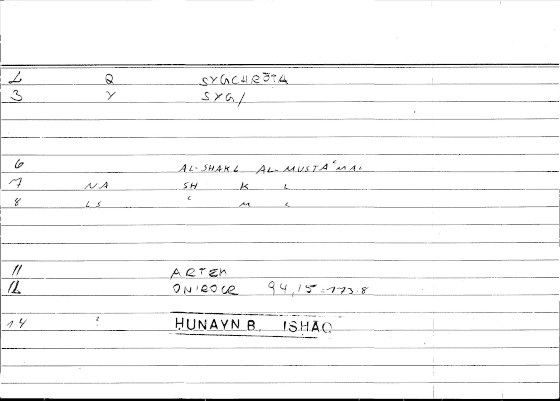 1 Q SYGCHRĒTA
3 Y SYG/
6 AL-SHAKL AL-MUSTAʿMAL
7 NA SH K L
8 LS ʿ M L
11 ARTEM
12 ONIROCR 94,15=173.8
14 ʿ HUNAYN B. ISHAQ